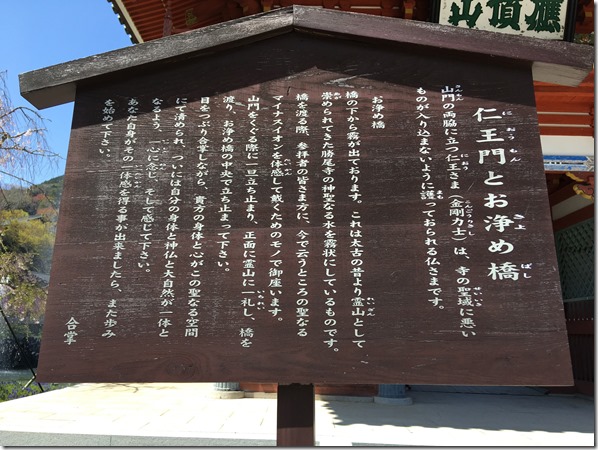 應頂山
仁王門とお浄め橋
山門の両脇に立つ仁王さま（金剛力士）は、寺の聖域に悪い
ものが入り込まないように護っておられる仏さまです。
お浄め橋
橋の下から霧が出ております。これは太古の昔より霊山として
崇められてきた勝尾寺の神聖なる水を霧状にしているものです。
橋を渡る際、参拝者の皆さま方に、今で云うところの聖なる
マイナスイオンを体感して戴くためのモノで御座います。
山門をくぐる際に一旦立ち止まり、正面に霊山に一礼し、橋を
渡り、お浄め橋の中央で立ち止まって下さい。
目をつぶり合掌しながら、貴方の身体と心がこの聖なる空間
にて清められ、ついには自分の身体と神仏と大自然が一体と
なるよう、一心に念じ、そして感じて下さい。
あなた自身がその一体感を得る事が出来ましたら、また歩み
を始めて下さい。
合掌